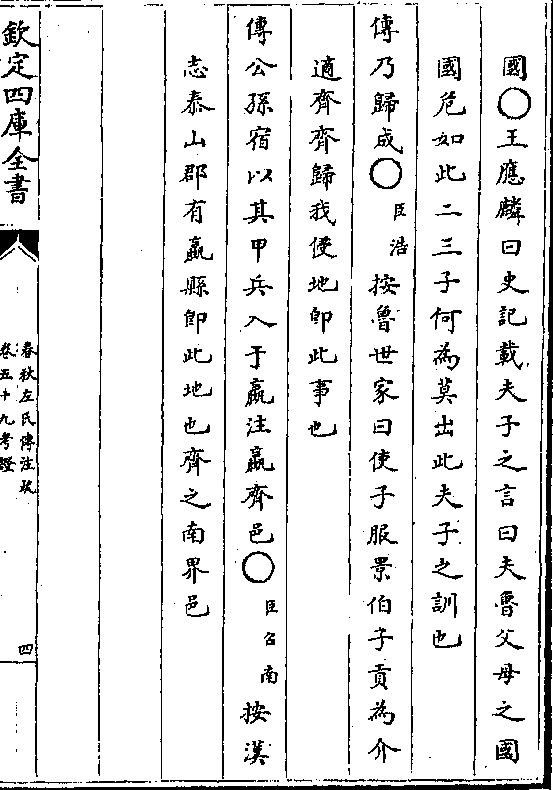 國○王應麟曰史記載夫子之言曰夫魯父母之國
國危如此二三子何為莫出此夫子之訓也
傳乃歸成○臣浩按魯世家曰使子服景伯子貢為介
適齊齊歸我侵地即此事也
傳公孫宿以其甲兵入于嬴注嬴齊邑○臣召南按漢
志泰山郡有嬴縣即此地也齊之南界邑
欽定四庫全書
春秋左氏傳注疏
卷五十九考證
四